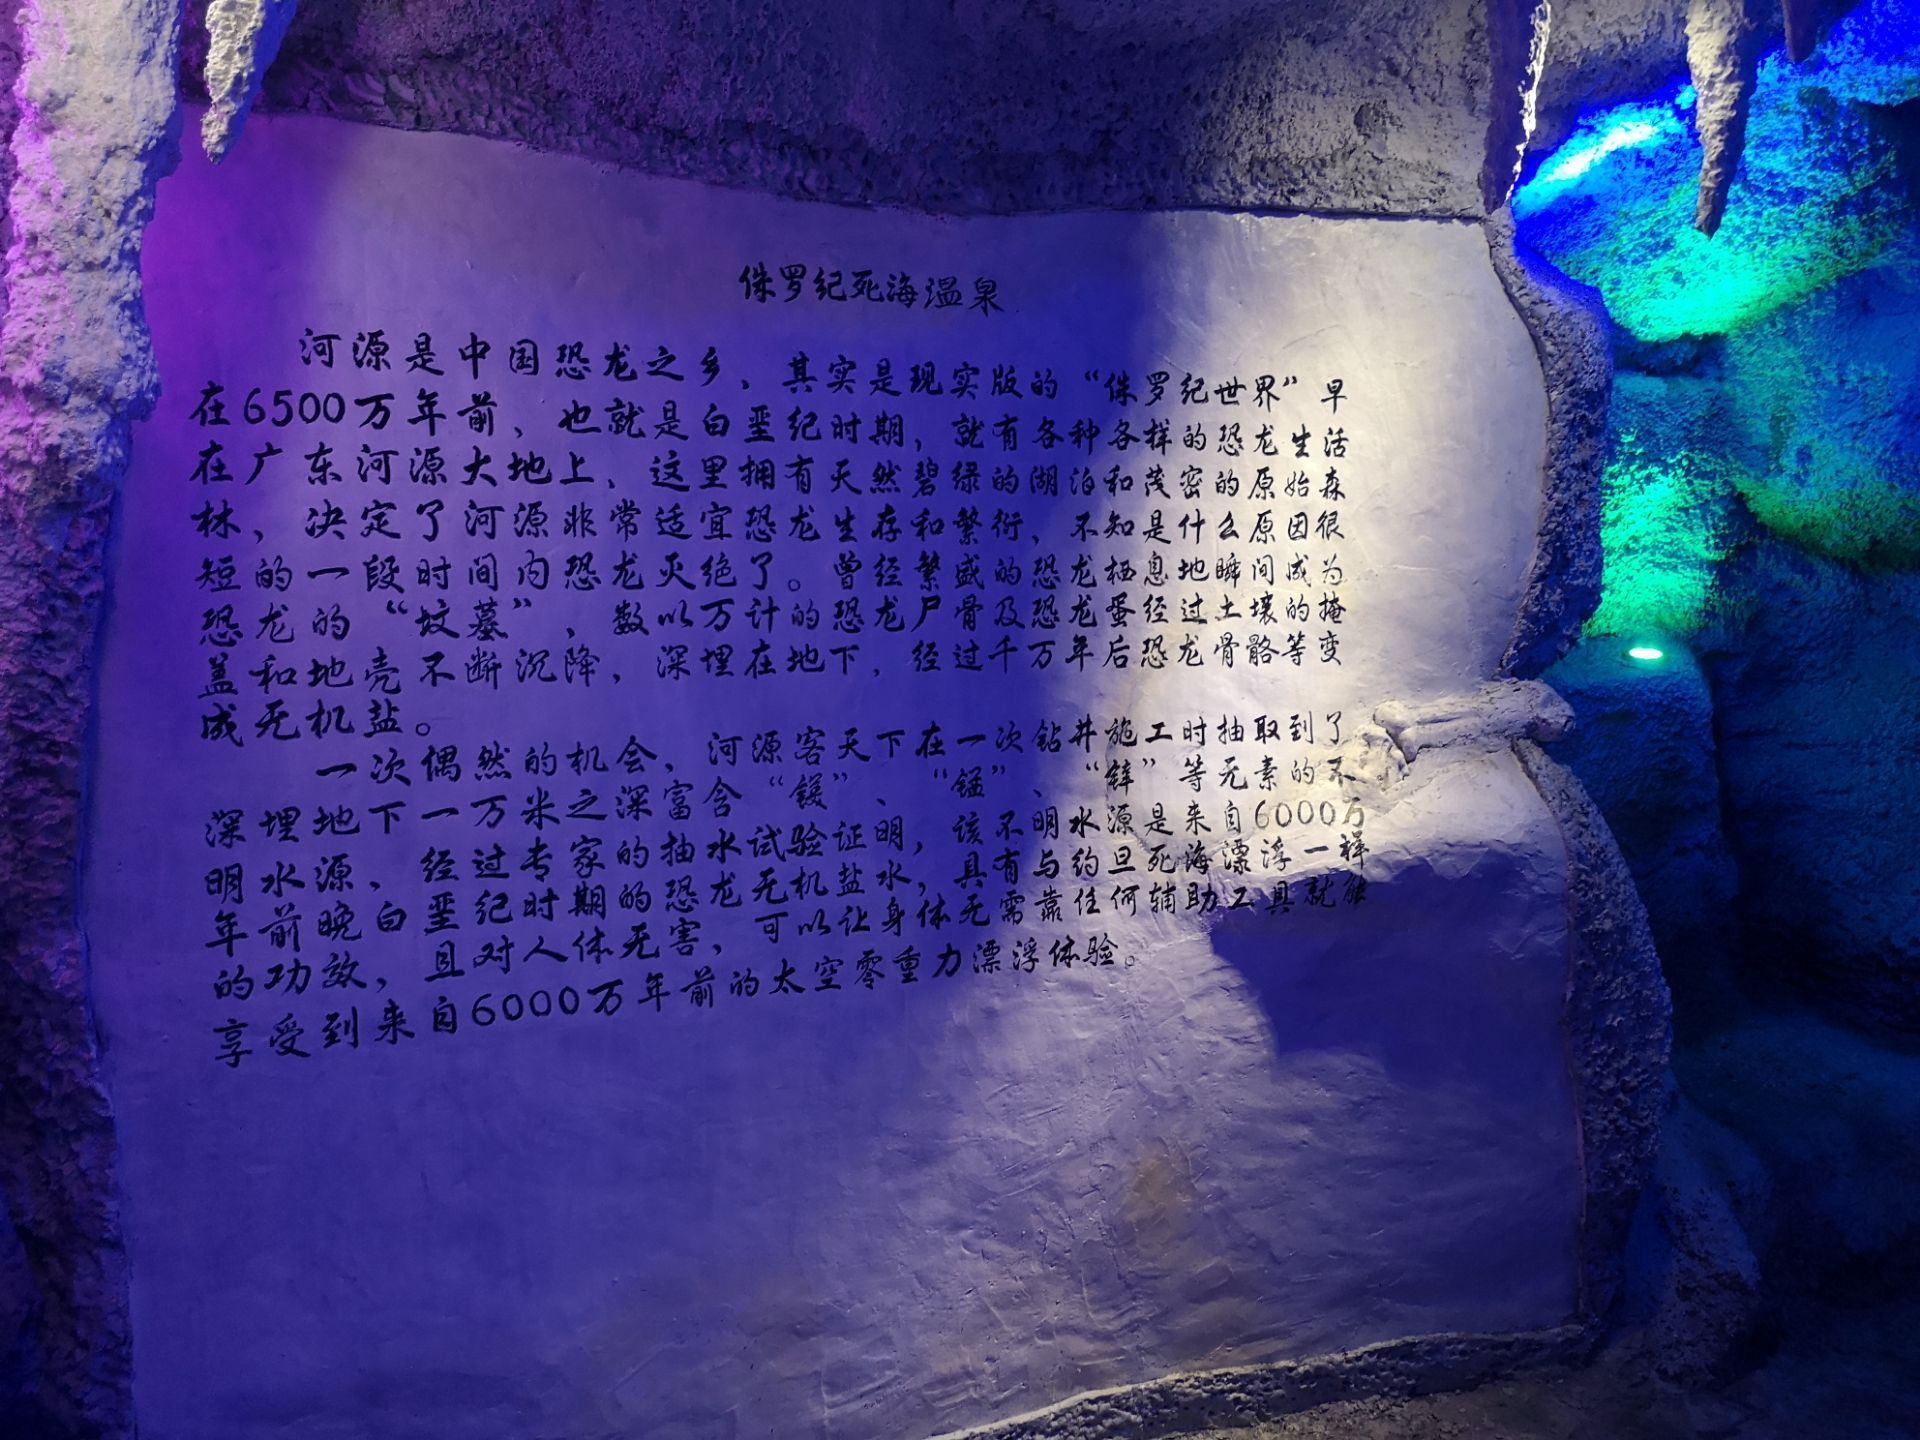 侏罗纪死海温泉
河源是中国恐龙之乡，其实是现实版的“侏罗纪世界”早
在6500万年前，也就是白垩纪时期，就有各种各样的恐龙生活
在广东河源大地上，这里拥有天然碧绿的湖泊和茂密的原始森
林，决定了河源非常适宜恐龙生存和繁衍，不知是什么原因很
短的一段时间内恐龙灭绝了。曾经繁盛的恐龙栖息地瞬间成为
恐龙的“坟墓”，数以万计的恐龙尸骨及恐龙蛋经过土壤的掩
盖和地壳不断沉降，深埋在地下，经过千万年后恐龙骨骼等变
成无机盐。
一次偶然的机会，河源客天下在一次钻井施工时抽取到了
深埋地下一万米之深富含“锾”、“锰”、“锌”等元素的不
明水源，经过专家的抽水试验证明，该不明水源是来自6000万
年前晚白垩纪时期的恐龙无机盐水，具有与约旦死海漂浮一样
的功效，且对人体无害，可以让身体无需靠任何辅助工具就能
享受到来自6000万年前的太空零重力漂浮体验。